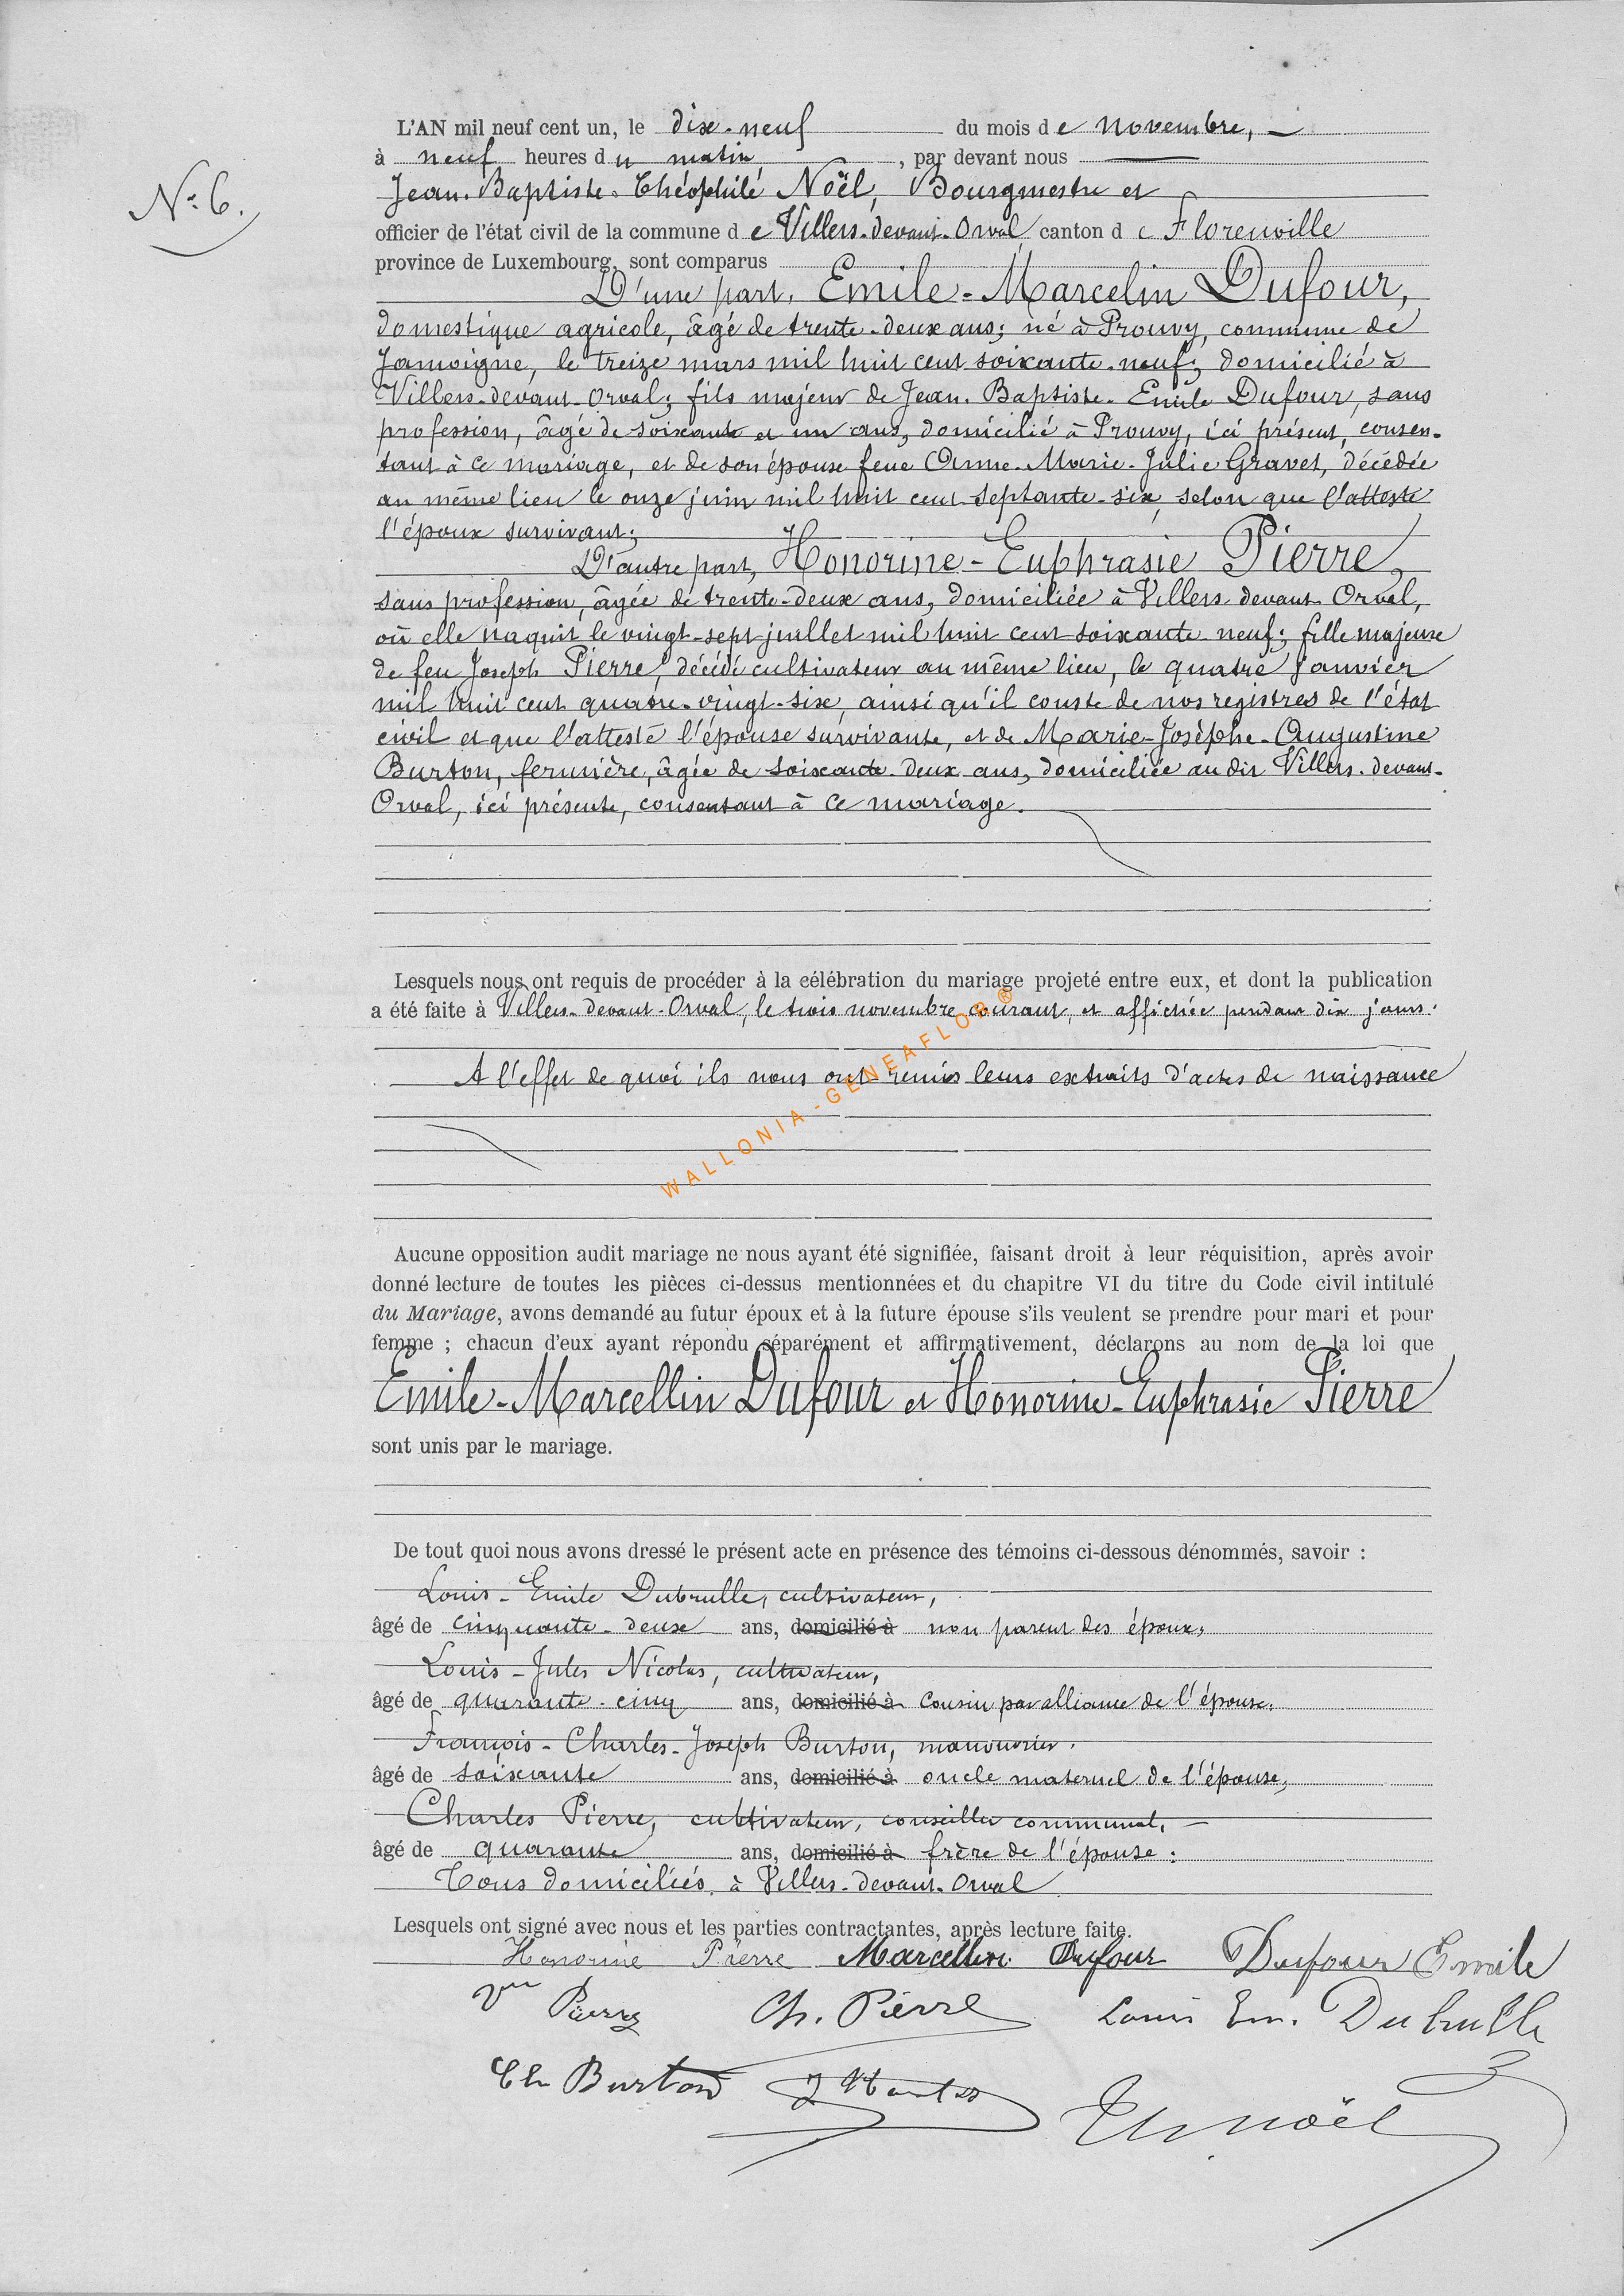 L'AN mil neuf cent un, le dix-neuf du mois de novembre,
à neuf heures du matin, par devant nous
N° 6.
Jean-Baptiste-Théophile Noël, Bourgmestre et
officier de l'état civil de la commune de Villers-devant-Orval canton de Florenville
province de Luxembourg, sont comparus
D'une part, Emile-Marcelin Dufour,
domestique agricole, âgé de trente-deux ans; né à Prouvy, commune de
Jamoigne, le treize mars mil huit cent soixante-neuf; domicilié à
Villers-devant-Orval; fils majeur de Jean-Baptiste-Emile Dufour, sans
profession, âgé de soixante et un ans, domicilié à Prouvy, ici présent, consen-
tant à ce mariage, et de son épouse feue Anne-Marie-Julie Gravet, décédée
au même lieu le onze juin mil huit cent septante-six, selon que l'atteste
l'époux survivant;
D'autre part, Honorine-Euphrasie Pierre,
sans profession, âgée de trente-deux ans, domiciliée à Villers-devant-Orval,
où elle naquit le vingt-sept juillet mil huit cent soixante-neuf; fille majeure
de feu Joseph Pierre, décédé cultivateur au même lieu, le quatre janvier
mil huit cent quatre-vingt-six, ainsi qu'il conste de nos registres de l'état
civil et que l'atteste l'épouse survivante, et de Marie-Josèphe-Augustine
Burton, fermière, âgée de soixante-deux ans, domiciliée au dit Villers-devant-
Orval, ici présente, consentant à ce mariage.
Lesquels nous ont requis de procéder à la célébration du mariage projeté entre eux, et dont la publication
a été faite à Villers-devant-Orval, le trois novembre courant, et affichée pendant dix jours.
A l'effet de quoi ils nous ont remis leurs extraits d'actes de naissance
WALLONIA - GENEAFLOR ®
Aucune opposition audit mariage ne nous ayant été signifiée, faisant droit à leur réquisition, après avoir
donné lecture de toutes les pièces ci-dessus mentionnées et du chapitre VI du titre du Code civil intitulé
du Mariage, avons demandé au futur époux et à la future épouse s'ils veulent se prendre pour mari et pour
femme ; chacun d'eux ayant répondu séparément et affirmativement, déclarons au nom de la loi que
Emile-Marcellin Dufour et Honorine-Euphrasie Pierre
sont unis par le mariage.
De tout quoi nous avons dressé le présent acte en présence des témoins ci-dessous dénommés, savoir :
Louis-Emile Dubrulle, cultivateur,
âgé de cinquante-deux ans, domicilié à non parent des époux,
Louis-Jules Nicolas, cultivateur,
âgé de quarante-cinq ans, domicilié à cousin par alliance de l'épouse,
François-Charles-Joseph Burton, manouvrier,
âgé de soixante ans, domicilié à oncle maternel de l'épouse,
Charles Pierre, cultivateur, conseiller communal,
âgé de quarante ans, domicilié à frère de l'épouse :
Tous domiciliés à Villers-devant-Orval
Lesquels ont signé avec nous et les parties contractantes, après lecture faite.
Honorine Pierre Marcellin Dufour Dufour Emile
Vve Pierre Ch. Pierre Louis Em. Dubrulle
Ch Burton Th Noël